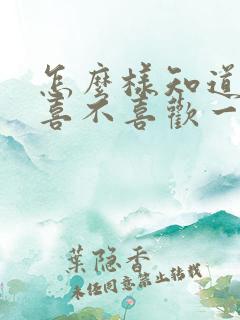 怎麼樣知道
喜不喜歡一
葉隐香
未任同意禁止转载